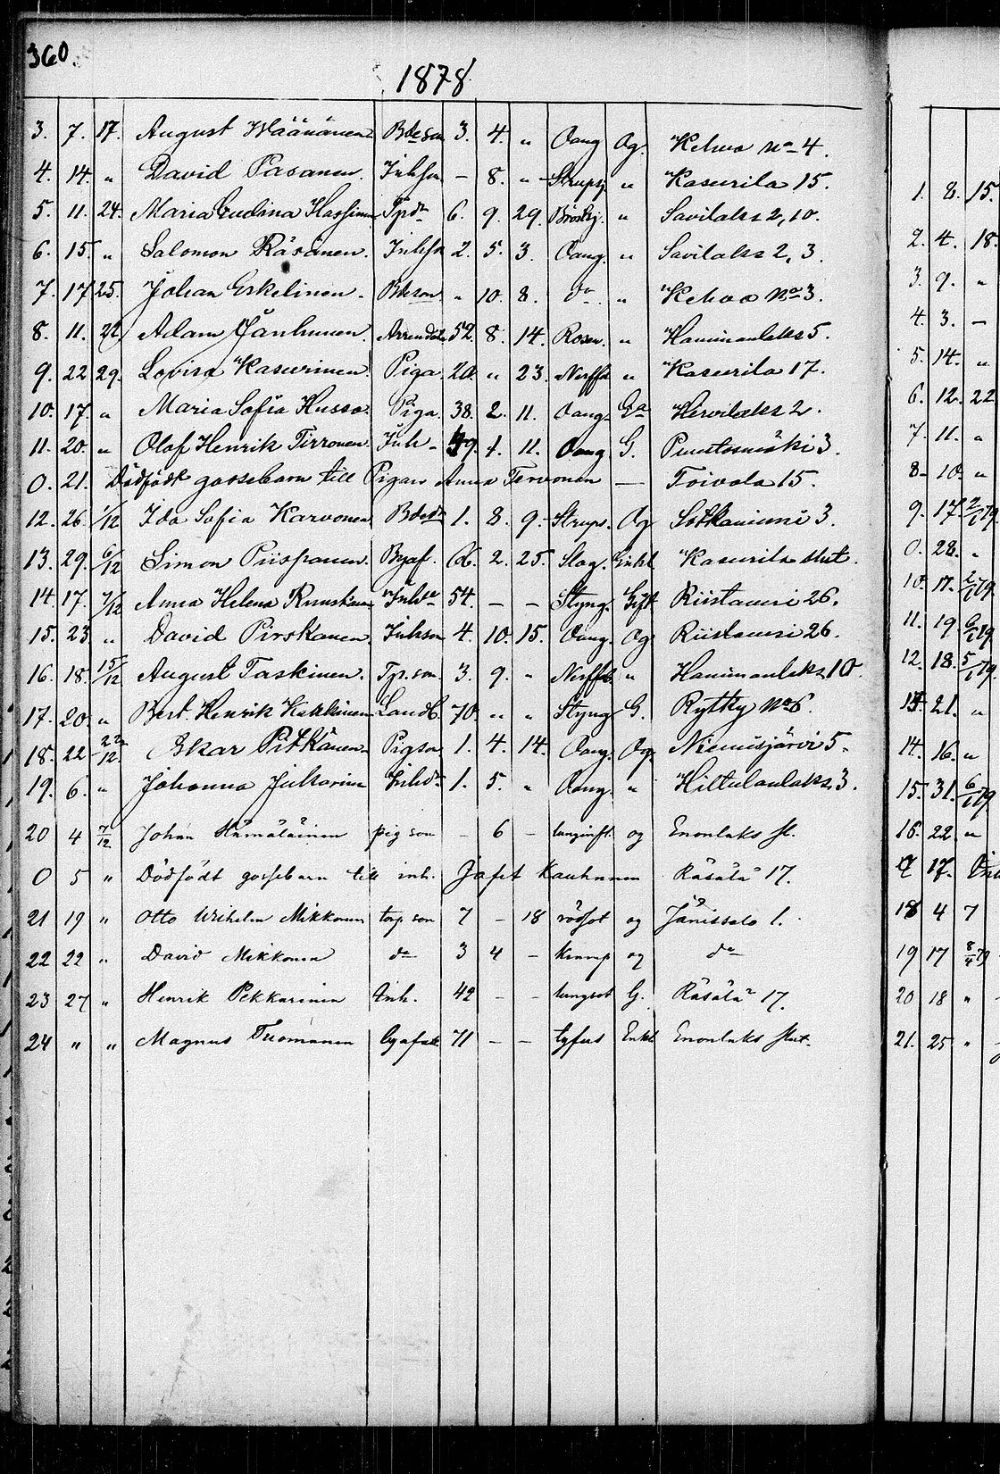 360.
1878
3. 7. 17. August Wäänänen Bdeson 3. 4. " Oang Og. Kehvo No 4.
4. 14. " David Pasanen. Inhson – 8. " Strupsj " Kasurila 15.
5. 11. 24. Maria Gudina Hassinen Tpdr 6. 9. 29. Bröstsj. " Savilaks 2, 10.
6. 15. " Salomon Räsänen. Inhsn 2. 5. 3. Oang. " Savilaks 2, 3.
7. 17 25. Johan Eskelinen. Bdeson " 10. 8. do " Kehvo No 3.
8. 11. 22 Adam Jänhunen 52. 8. 14. Rosen. " Hamimanlaks 5.
9. 22 29. Lovisa Kasurinen. Piga. 20. " 23. Nerffb " Kasurila 17.
10. 17. " Maria Sofia Husso. Piga. 38. 2. 11. Oang. Ga Hirvilaks 2.
11. 20. " Olof Henrik Tirronen. Inh– 49. 1. 11. Oang G. Puutosmäki 3.
0. 21. Dödfödt gossebarn till Pigan Anna Tervonen — Toivola 15.
12. 26. 1/12 Ida Sofia Karvonen Bdedr 1. 8. 9. Strups. Og Sotkaniemi 3.
13. 29. 6/12 Simon Piispanen. Byaf. 66. 2. 25. Slag. Enkl Kasurila slut.
14. 17. 7/12 Anna Helena Ruuskanen Inhda 54. – – Styng. Gift Riistavesi 26.
15. 23 " David Pirskanen. Inhson 4. 10. 15. Oang. Og Riistavesi 26.
16. 18. 15/12 August Taskinen. Tp.son 3. 9. " Nerffb. " Hamimanlaks 10.
17. 20. " Bert. Henrik Kakkinen Landb. 70. " " Styng G. Rytky No 6.
18. 22 22/12. Oskar Pitkänen. Pigson 1. 4. 14. Oang. Og. Niemisjärvi 5.
19. 6. " Johanna Julkunen Inhdr 1. 5. " Oang. " Hiltulanlaks 3.
20 4 7/12 Johan Hämäläinen pigson – 6 – lunginfl. og Enonlaks sl.
0 5 " Dödfödt gossebarn till inh. Jafet Kauhanen Räsälä 17.
21 19 " Otto Wilhelm Mikkonen torp son 7 – 18 rödsot og Jänissalo 1.
22 22 " David Mikkonen do 3 4 – kramp og do
23 27 " Henrik Pekkarinen Inh. 42 – – lungsot G. Räsälä 17.
24 " " Magnus Tuomanen byafat 71 – – tyfus Enkl Enonlaks slut.
1. 8. 15.
2. 4. 18.
3. 9. "
4. 3. –
5. 14. "
6. 12. 22
7. 11. "
8– 10. "
9. 17. 2/1 79
0. 28. "
10. 17. 2/1 79
11. 19 6/1 79
12. 18. 5/1 79.
13. 21. "
14. 16. "
15. 31. 6/1 79
16. 22. "
0 17.
18 4 7
19 17 8/4 79
20 18 "
21. 25 "